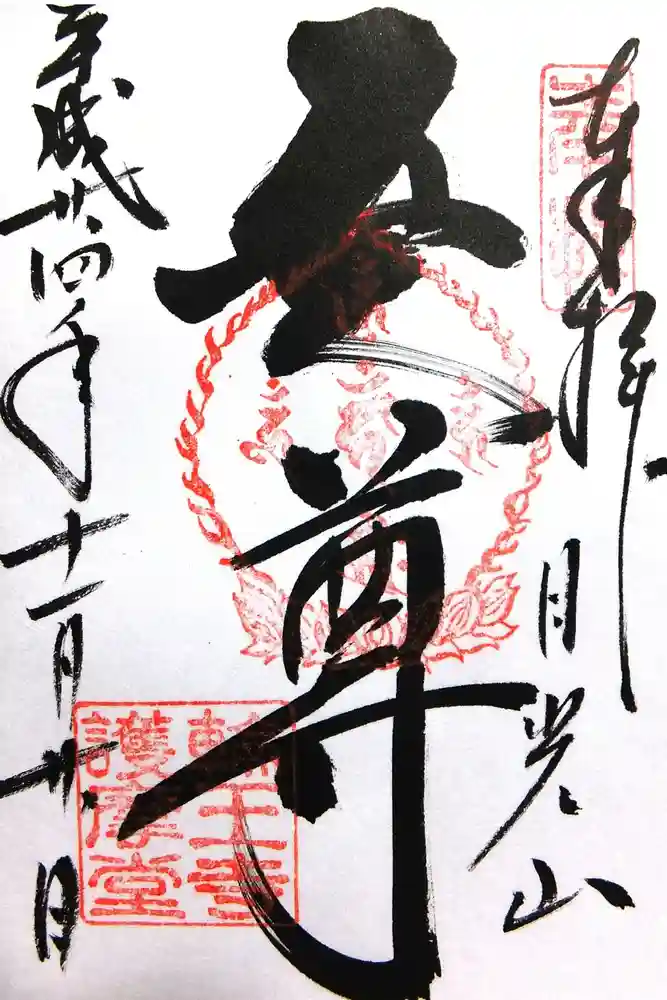 奉拝 日光山
五大尊
輪王寺
護摩堂
平成廿四年十一月廿日